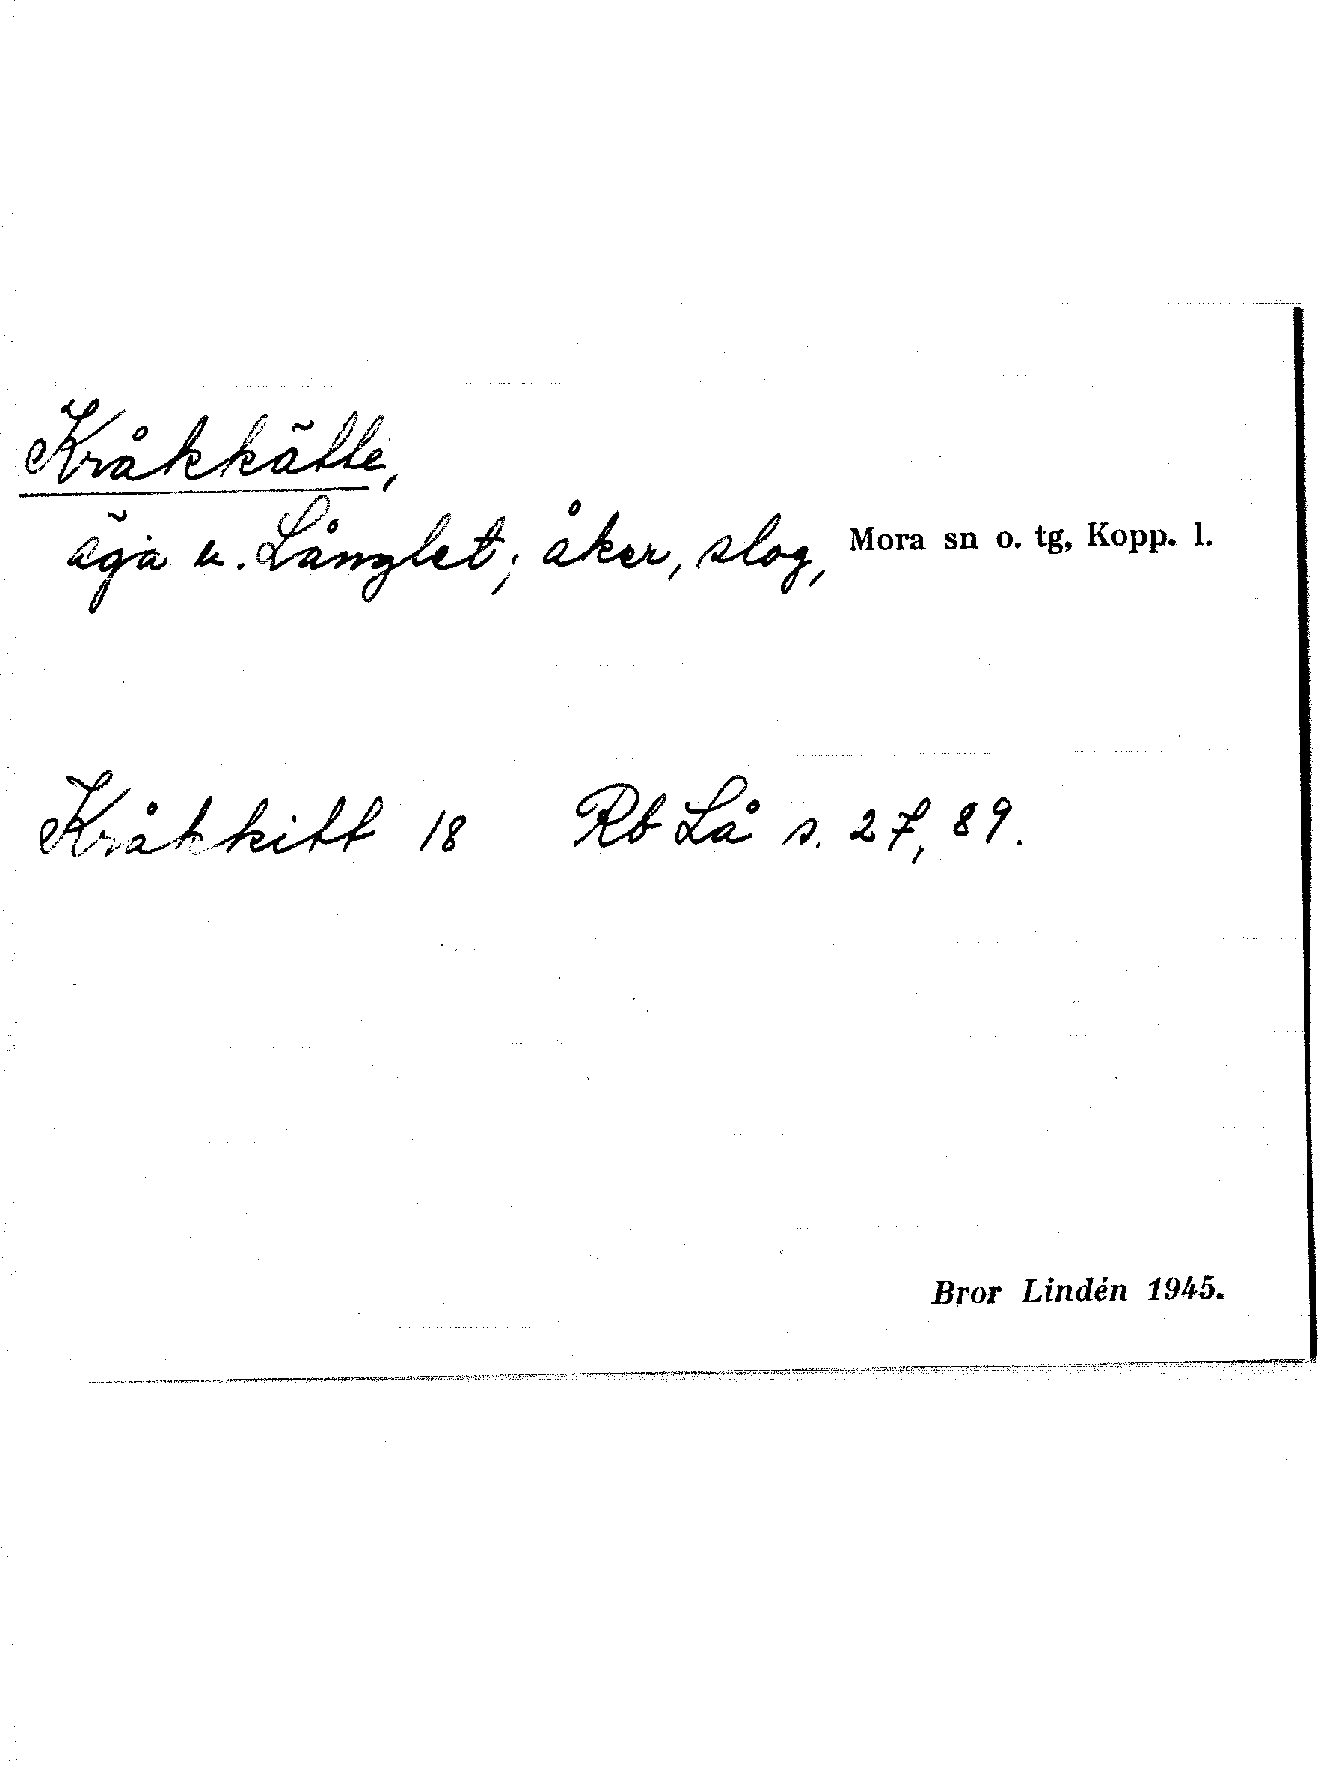 Kråkkätte,
äga u. Långlet; åker, slog, Mora sn o. tg, Kopp. l.
Kråkkitt 18 Rb Lå s. 27, 89.
Bror Lindén 1945.